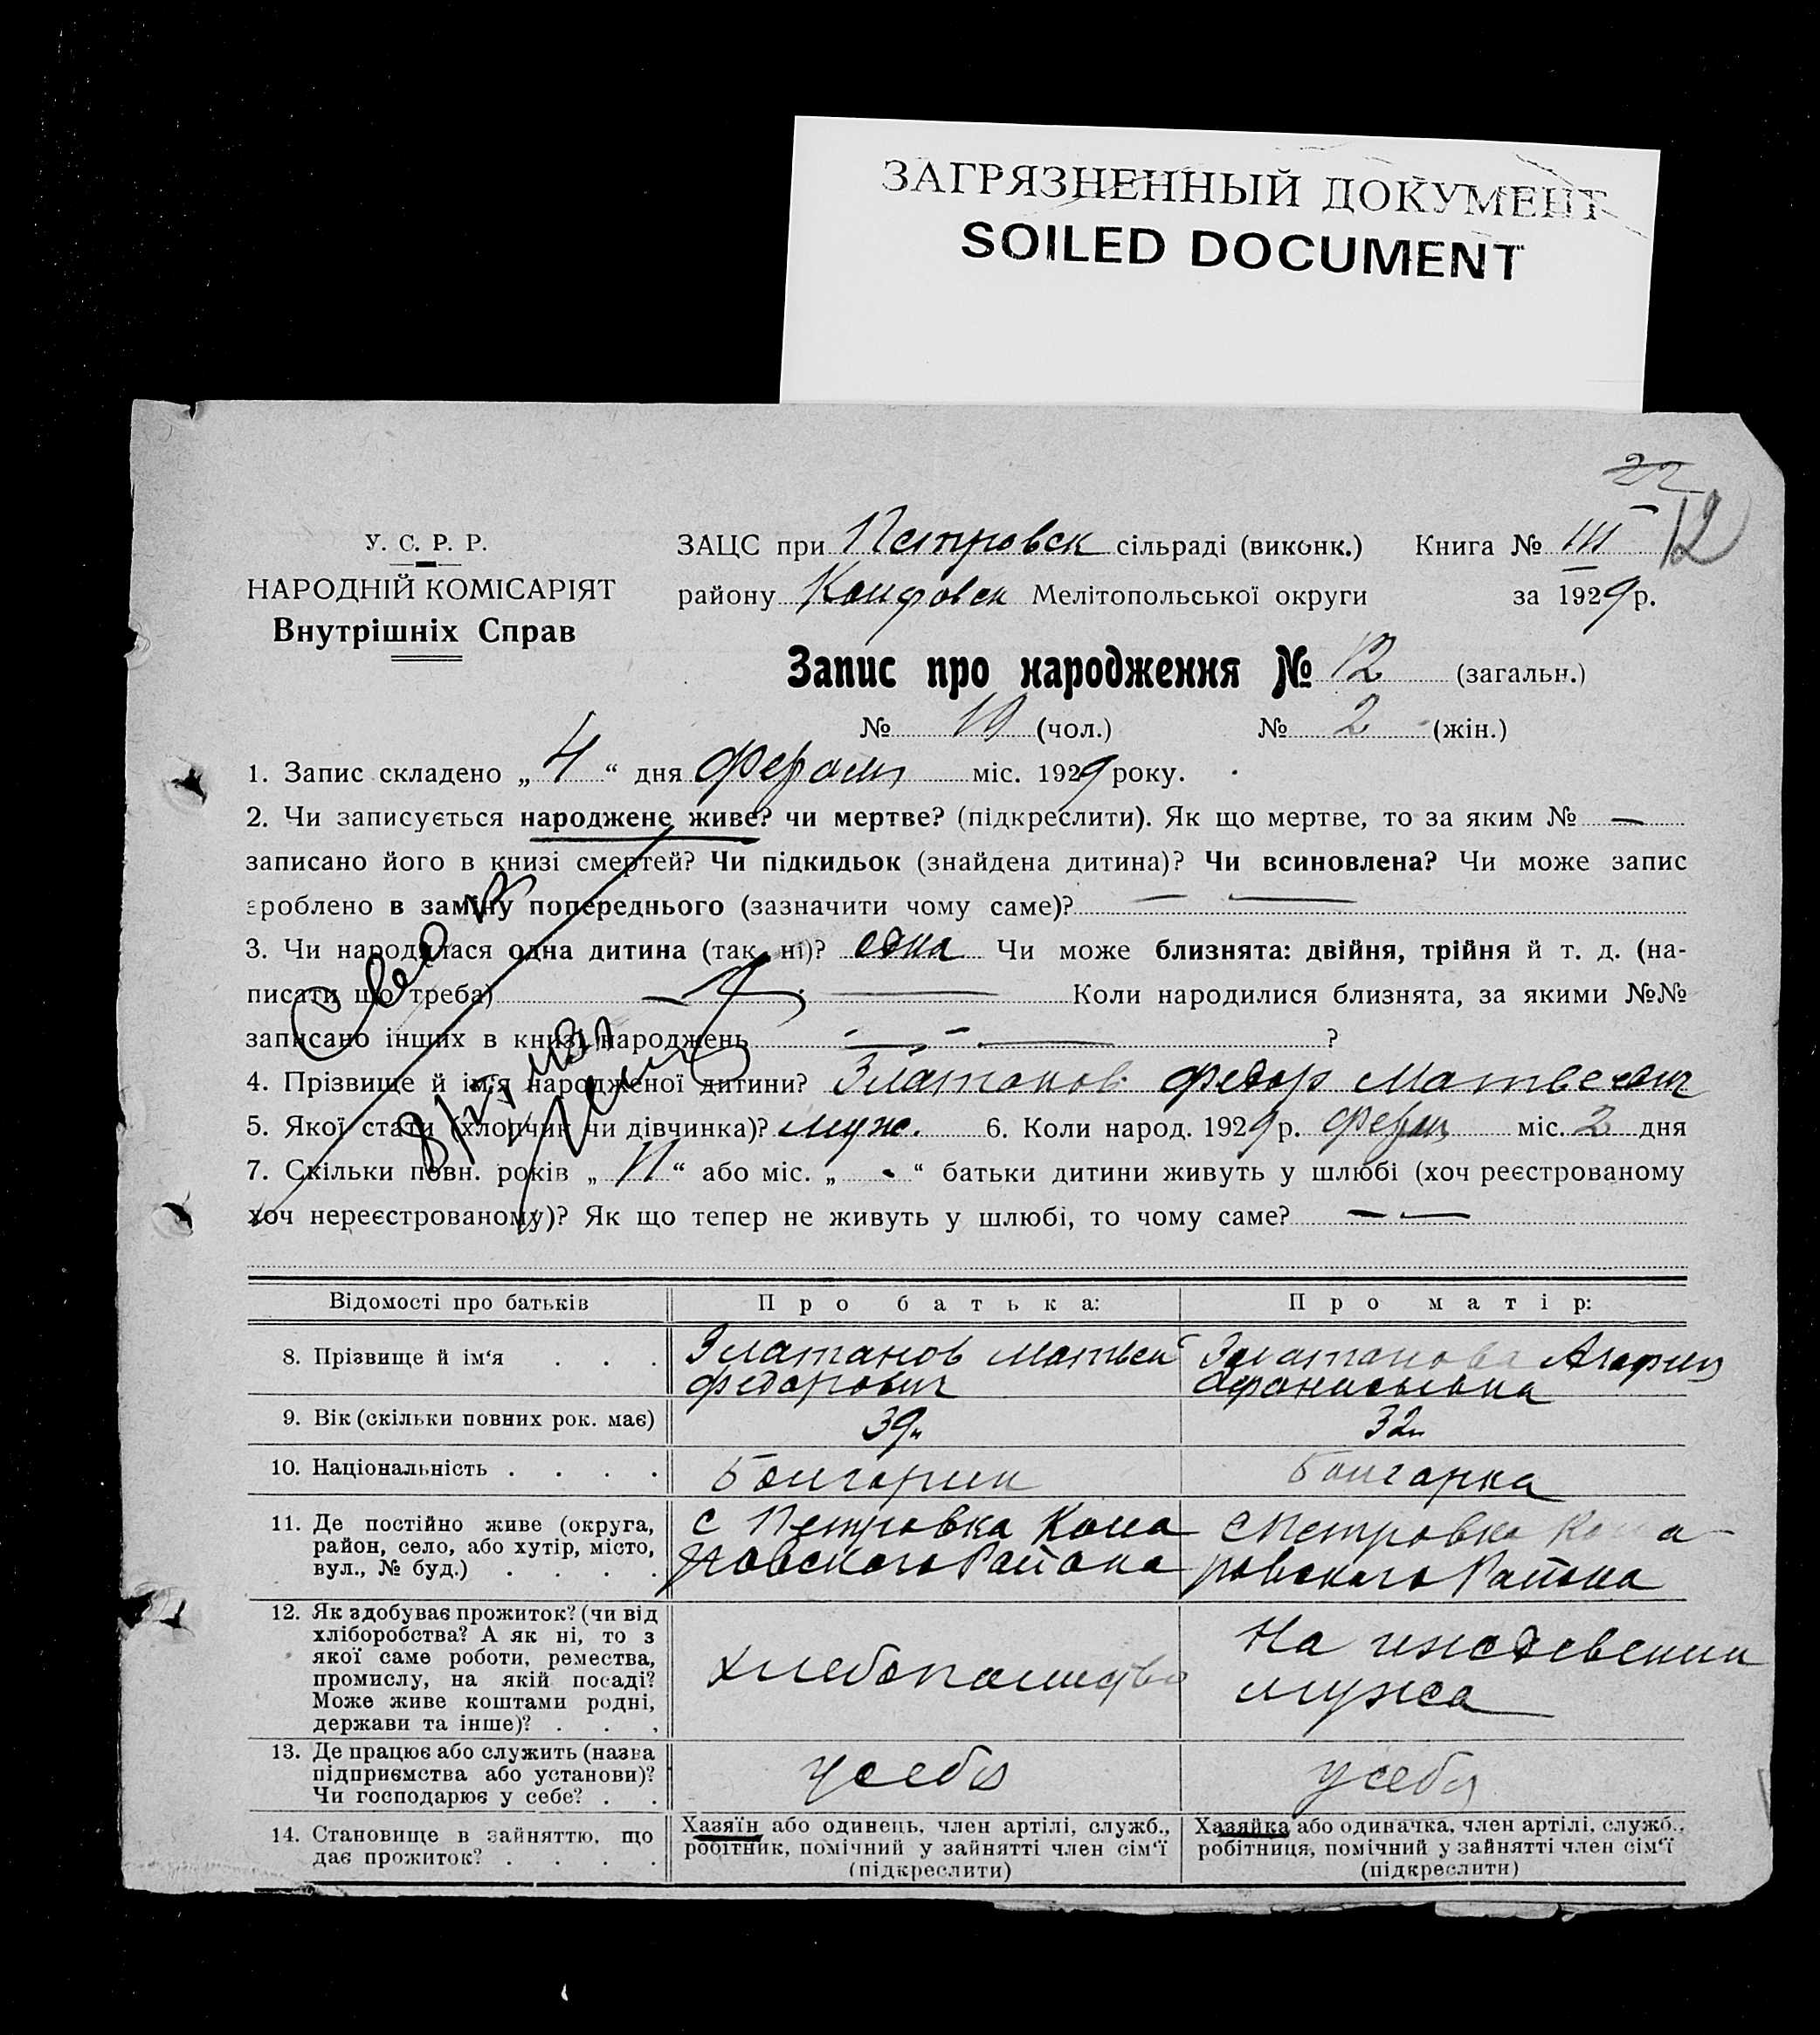 ЗАГРЯЗНЕННЫЙ ДОКУМЕНТ
SOILED DOCUMENT
22
12
У. С. Р. Р.
НАРОДНІЙ КОМІСАРІЯТ
Внутрішніх Справ
ЗАЦС при Петровск сільраді (виконк.) Книга № III
району Мелітопольської округи за 1929 р.
Запис про народження № 12 (загальн.)
№ 10 (чол.) № 2 (жін.)
1. Запис складено „ 4 “ дня міс. 1929 року.
2. Чи записується народжене живе? чи мертве? (підкреслити). Як що мертве, то за яким № —
записано його в книзі смертей? Чи підкидьок (знайдена дитина)? Чи всиновлена? Чи може запис
зроблено в заміну попереднього (зазначити чому саме)? — —
3. Чи народилася одна дитина (так, ні)? одна Чи може близнята: двійня, трійня й т. д. (на-
писати що треба) — Коли народилися близнята, за якими №№
записано інших в книзі народжень — — ?
4. Прізвище й ім'я народженої дитини? Златанов Федор Матвеевич
5. Якої статі (хлопчик чи дівчинка)? муж. 6. Коли народ. 1929 р. міс. 2 дня
7. Скільки повн. років „ 11 “ або міс. „ - “ батьки дитини живуть у шлюбі (хоч реєстрованому
хоч нереєстрованому)? Як що тепер не живуть у шлюбі, то чому саме? — —
Відомості про батьків Про батька: Про матір:
8. Прізвище й ім'я . . . Златанов Матвей Федорович Златанова Агафия
9. Вік (скільки повних рок. має) 39 32
10. Національність . . . . Болгарин Болгарка
11. Де постійно живе (округа,
район, село, або хутір, місто,
вул., № буд.) . . . .
с Петровка Кола
ровского Района
с Петровка Кола
ровского Района
12. Як здобуває прожиток? (чи від
хліборобства? А як ні, то з
якої саме роботи, ремества,
промислу, на якій посаді?
Може живе коштами родні,
держави та інше)? . . .
На иждевении
мужа
13. Де працює або служить (назва
підприємства або установи)?
Чи господарює у себе? . .
у себя
у себя
14. Становище в зайняттю, що
дає прожиток? . . . .
Хазяїн або одинець, член артілі, служб.,
робітник, помічний у зайнятті член сім'ї
(підкреслити)
Хазяйка або одиначка, член артілі, служб.,
робітниця, помічний у зайнятті член сім'ї
(підкреслити)